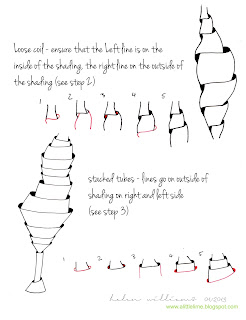 Loose coil - ensure that the Left line is on the
inside of the shading, the right line on the outside of
the shading (see step 2)
1 2 3 4 5
stacked tubes - lines go on outside of
shading on right and left side
(see step 3)
1 2 3 4 5
helen williams 01/2013
www.alittlelime.blogspot.com